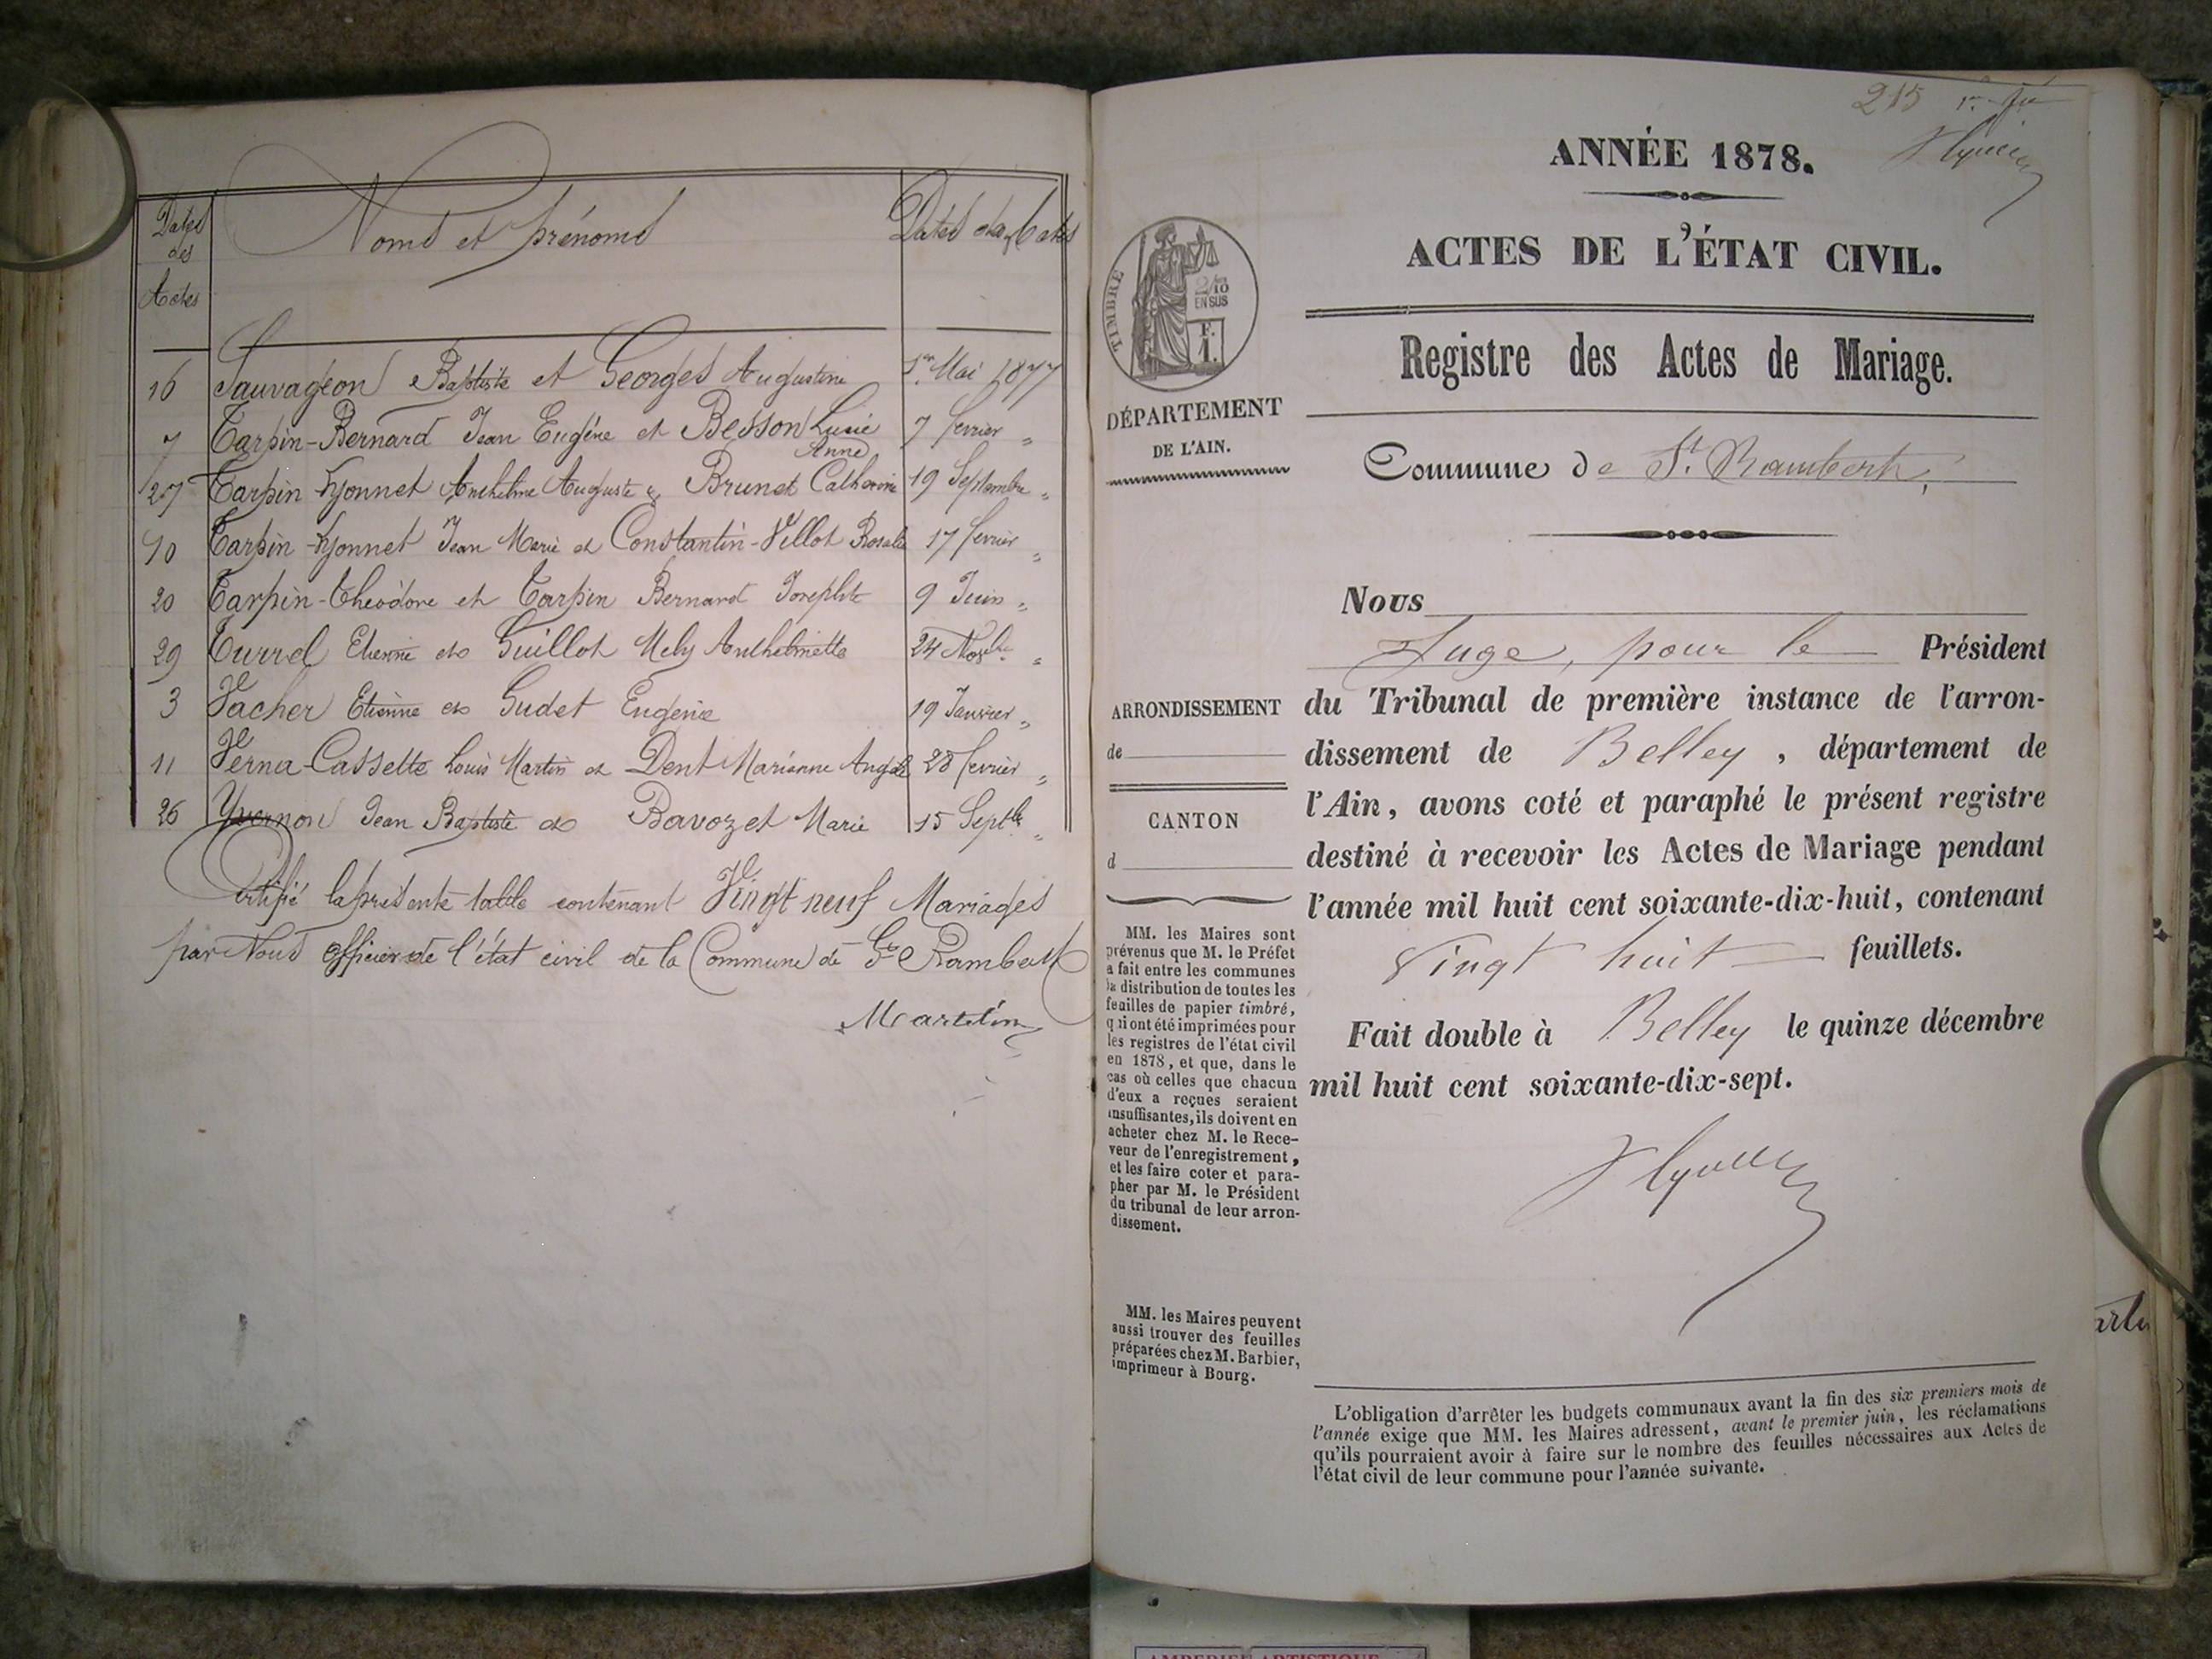 Dates des Actes
Noms et prénoms
Dates des actes
16 Sauvageon Baptiste et Georges Augustine 1er Mai 1877
7 Tarpin-Bernard Jean Eugène et Besson Lucie Anne 7 fevrier "
27 Tarpin-Lyonnet Anthelme Auguste & Brunet Catherine 19 Septembre "
10 Tarpin-Lyonnet Jean Marie et Constantin-Villot Rosalie 17 fevrier "
20 Tarpin-Théodore et Tarpin Bernard Josephte 9 Juin "
29 Turrel Etienne et Guillot Mely Anthelmette 24 Novbre "
3 Vacher Etienne et Gudet Eugenie 19 Janvier "
11 Verna-Cassette Louis Martin et Dent Marianne Angele 28 fevrier "
26 Yvernon Jean Baptiste et Bavozet Marie 15 Septbre "
Certifié la présente table contenant Vingt neuf Mariages
par Nous officier de l'état civil de la Commune de St Rambert
Martelin
215
ANNÉE 1878.
ACTES DE L'ÉTAT CIVIL.
TIMBRE
2/10
EN SUS
F.
1.
Registre des Actes de Mariage.
DÉPARTEMENT
DE L'AIN.
Commune de St. Rambert,
Nous
Juge, pour le Président
du Tribunal de première instance de l'arron-
dissement de Belley, département de
l'Ain, avons coté et paraphé le présent registre
destiné à recevoir les Actes de Mariage pendant
l'année mil huit cent soixante-dix-huit, contenant
Vingt huit feuillets.
Fait double à Belley le quinze décembre
mil huit cent soixante-dix-sept.
ARRONDISSEMENT
de
CANTON
d
MM. les Maires sont
prévenus que M. le Préfet
a fait entre les communes
la distribution de toutes les
feuilles de papier timbré,
qui ont été imprimées pour
les registres de l'état civil
en 1878, et que, dans le
cas où celles que chacun
d'eux a reçues seraient
insuffisantes, ils doivent en
acheter chez M. le Rece-
veur de l'enregistrement,
et les faire coter et para-
pher par M. le Président
du tribunal de leur arron-
dissement.
MM. les Maires peuvent
aussi trouver des feuilles
préparées chez M. Barbier,
imprimeur à Bourg.
L'obligation d'arrêter les budgets communaux avant la fin des six premiers mois de
l'année exige que MM. les Maires adressent, avant le premier juin, les réclamations
qu'ils pourraient avoir à faire sur le nombre des feuilles nécessaires aux Actes de
l'état civil de leur commune pour l'année suivante.